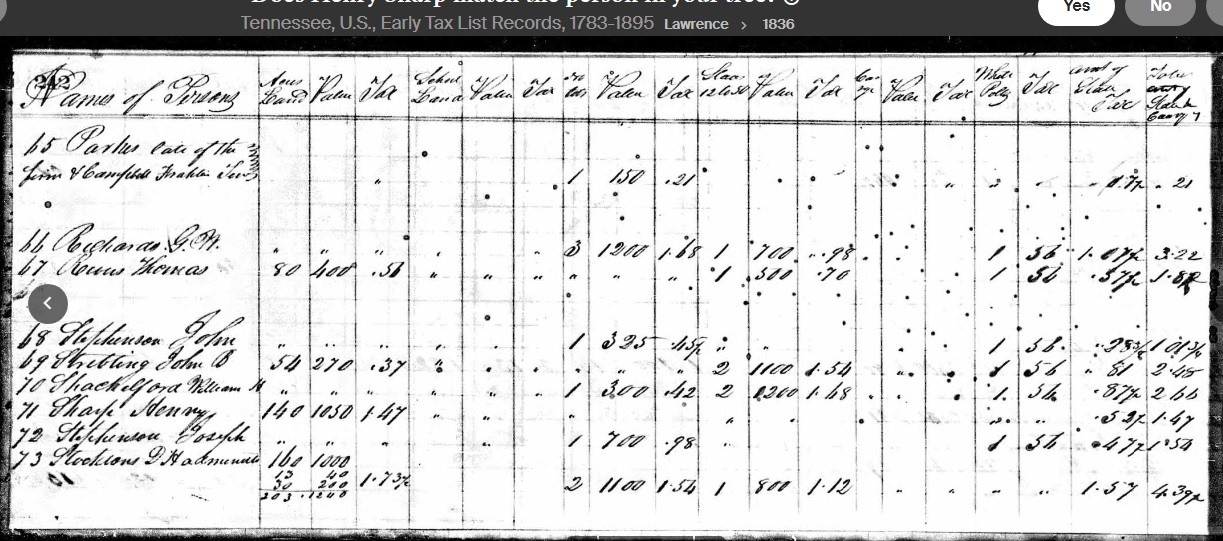 Does Henry Sharp match the person in your tree?
Tennessee, U.S., Early Tax List Records, 1783-1895 Lawrence > 1836
Yes No
Names of Persons Acres Land Valu Tax School Land Valu Tax Valu Tax Slaves 12 to 50 Valu Tax Valu Tax White Polls Tax amt of State Tax
65 Parkes late of the
firm & Campbell 1 150 .21 . 21
66 Richards G. W. " " " " 3 1200 1.68 1 700 .98 1 56 1.07½ 3.22
67 Thomas 80 400 .56 " " " " " " 1 500 .70 1 56 .57½
68 Stephenson John " " " " " 1 325 .45½ " 1 56
69 Stribling John B 54 270 .37 " " " " " 2 1100 1.54 1 56 " 81 2.48
70 Shackelford William H " " " " " 1 300 .42 2 1200 1.68 1 56 .87½ 2 66
71 Sharp Henry 140 1050 1.47 " " " " .52½ 1.47
72 Stephenson Joseph " " " " 1 700 .98 " 1 56 .47½ 1.54
73 Stocktons 160 1000
13 40
30 200
203 1240 1.73½ 2 1100 1.54 1 800 1.12 " " " " 1.57 4.39½